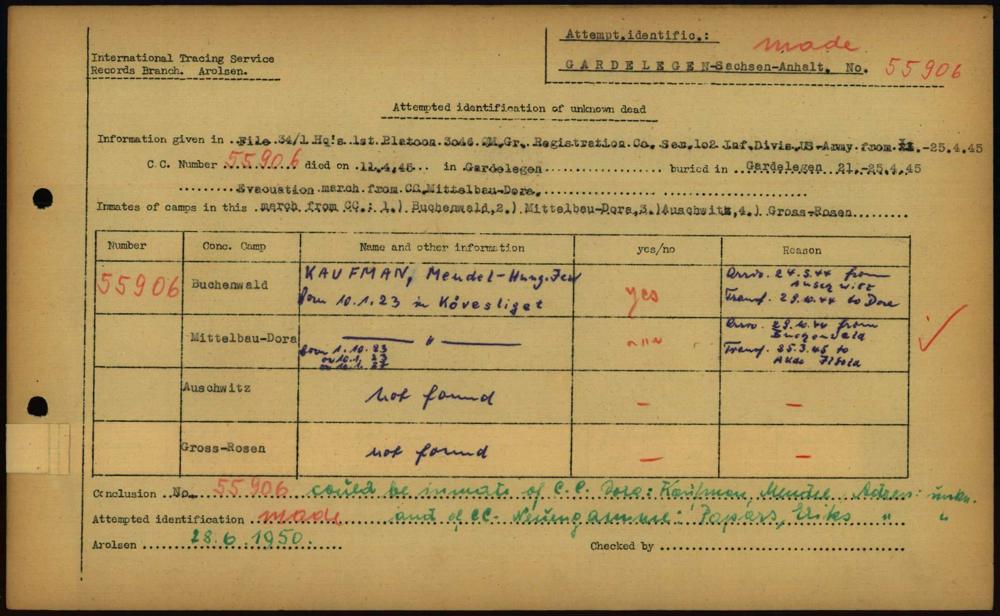 International Tracing Service
Records Branch. Arolsen.
Attempt.identific.: made
GARDELEGEN-Sachsen-Anhalt. No. 55906
Attempted identification of unknown dead
Information given in File 34/1 Hq's 1st Platoon 3046 QM.Gr. Registration Co. Sen.102 Inf.Divis.US-Army.from -25.4.45
C.C. Number 55906 died on 11.4.45 in Gardelegen buried in Gardelegen 21.-25.4.45
Evacuation march from CC.Mittelbau-Dora.
Inmates of camps in this march from CC.: 1.) Buchenwald,2.) Mittelbau-Dora,3.)Auschwitz,4.) Gross-Rosen
Number Conc. Camp Name and other information yes/no Reason
55906 Buchenwald KAUFMAN, Mendel-Hung.Jew yes Arriv. 24.5.44 from Auschwitz
born 10.1.23 in Kövesliget Transf. 29.10.44 to Dora
Mittelbau-Dora — " — -"- Arriv. 29.10.44 from Buchenwald
born 1.10.23 Transf. 25.3.45 to
or 10.1.23
Auschwitz not found — —
Gross-Rosen not found — —
Conclusion No. 55906 could be inmate of C.C. Dora: Kaufman, Mendel, Adress: unkn.
Attempted identification made and of CC. Neuengamme: Papars, Eriks " "
Arolsen 28.6.1950. Checked by